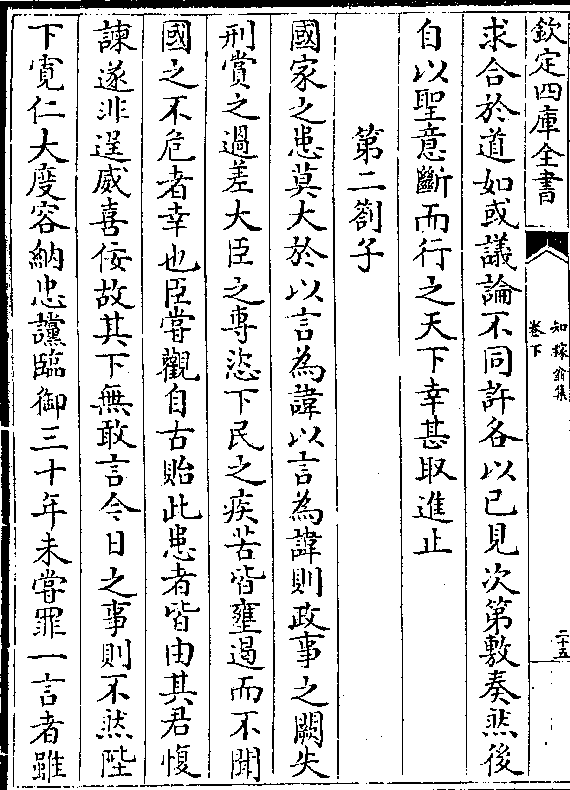 欽定四庫全書
知稼翁集
卷下
二十五
求合於道如或議論不同許各以已見次第敷奏然後
自以聖意斷而行之天下幸甚取進止
第二劄子
國家之患莫大於以言為諱以言為諱則政事之闕失
刑賞之過差大臣之專恣下民之疾苦皆壅遏而不聞
國之不危者幸也臣嘗觀自古貽此患者皆由其君愎
諫遂非逞威喜佞故其下無敢言今日之事則不然陛
下寛仁大度容納忠讜臨御三十年未嘗罪一言者雖